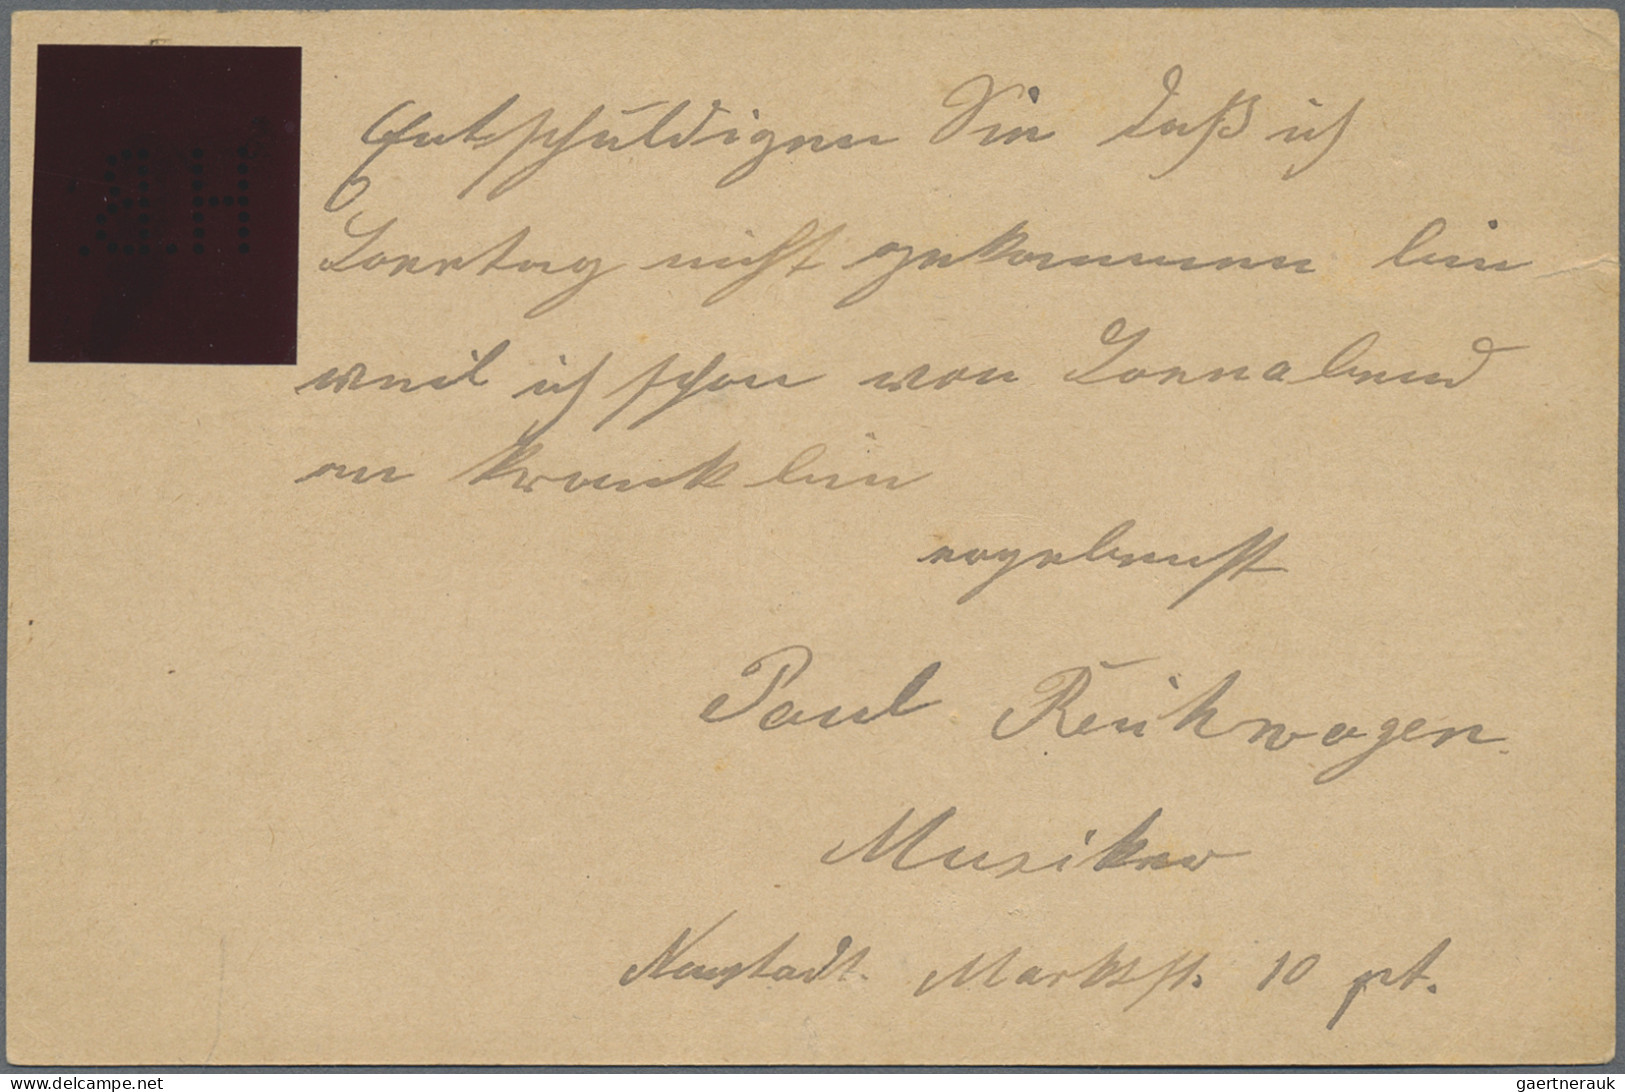 Entschuldigen Sie daß ich
Sonntag nicht gekommen bin
weil ich schon von Sonnabend
an krank bin
ergebenst
Paul Reichwagen
Musiker
Neustadt. Marktstr. 10 pt.
www.delcampe.net
gaertnerauk